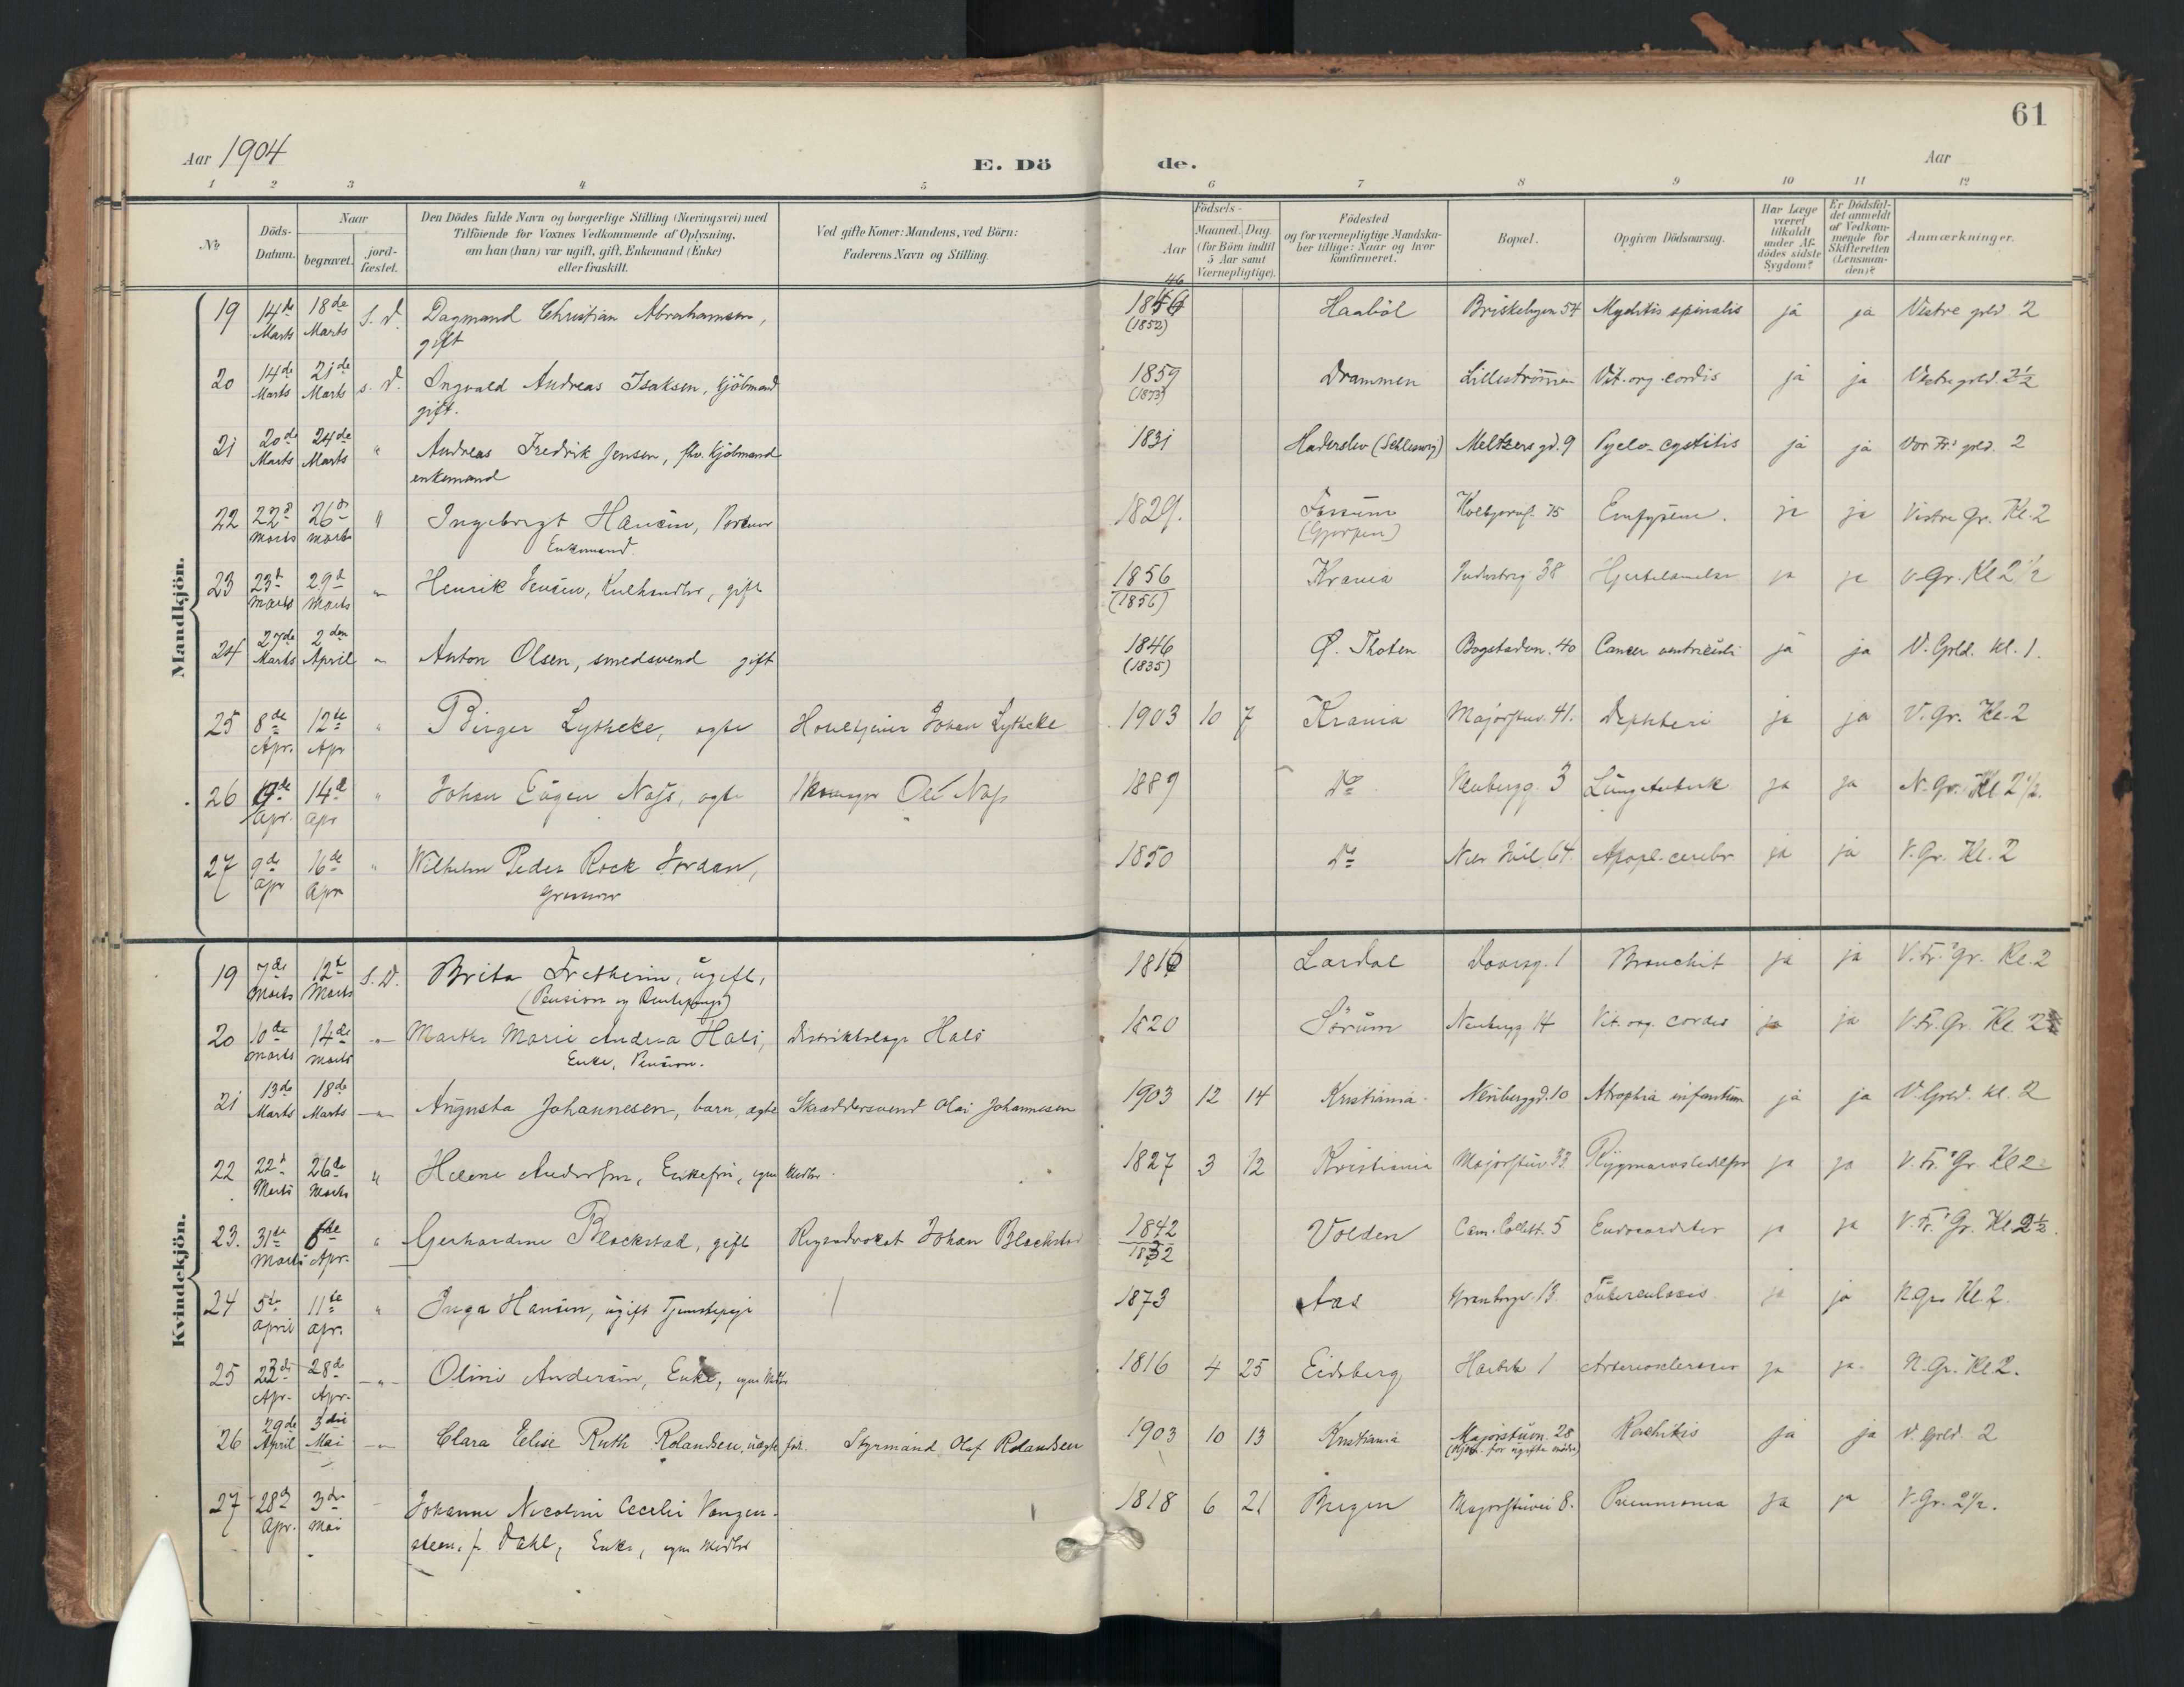 61
Aar 1904
E. Dö de.
Aar
1 2 3 4 5 6 7 8 9 10 11 12
No
Döds-Datum.
Naar
begravet.
jordfæstet.
Den Dödes fulde Navn og borgerlige Stilling (Næringsvei) med
Tilföiende for Voxnes Vedkommende af Oplysning,
om han (hun) var ugift, gift, Enkemand (Enke)
eller fraskilt.
Ved gifte Koner: Mandens, ved Börn:
Faderens Navn og Stilling.
Födsels-
Aar
Maaned. Dag.
(for Börn indtil
5 Aar samt
Værnepligtige).
Födested
og for værnepligtige Mandskaber tillige: Naar og hvor
konfirmeret.
Bopæl.
Opgiven Dödsaarsag.
Har Læge
været
tilkaldt
under Afdödes sidste
Sygdom?
Er Dödsfaldet anmeldt
af Vedkommende for
Skifteretten
(Lensmanden)?
Anmærkninger.
Mandkjön.
19 14de Marts 18de Marts S. D. Dagmand Christian Abrahamsen, 1846 Haaböl Briskebyen 54 Myelitis spinalis ja ja Vestre grld 2
gift (1852)
20 14de Marts 21de Marts s. D. Ingvald Andreas Isaksen, kjöbmand 1859 Drammen Lilleströmmen Vit. org. cordis ja ja Vestre grld. 2½
gift. (1873)
21 20de Marts 24de Marts " Andreas Fredrik Jensen, fhv. kjöbmand 1831 Haderslev (Schleswig) Meltzers gd. 9 Pyelo-cystitis ja ja Vor Fr.s grld. 2
enkemand
22 22d Marts 26d Marts " Ingebrigt Hansen, 1829. Fossum 75 Emfysem. ja ja Vestre Gr. Kl. 2
Enkemand. (Gjerpen)
23 23d Marts 29d Marts " Henrik Jensen, Kulhandler, gift 1856 Krania 38 ja ja V. Gr. Kl 2½
(1856)
24 27de Marts 2den April " Anton Olsen, smedsvend gift 1846 Ø. Thoten Bogstadvn. 40 Cancer ventriculi ja ja V. Grld. kl. 1.
(1835)
25 8de Apr. 12te Apr " Birger Lytheke, ægte Johan Lytheke 1903 10 7 Krania Majorstuv. 41. Difteri ja ja V. Gr. Kl. 2
26 Apr. 14d Apr " Johan Eugen Næss, ægte Ole Næss 1889 Do Neubergg. 3 ja ja N. Gr. Kl 2½.
27 9de Apr 16de Apr " Wilhelm Peder Rock Jordan, 1850 Do Niels Juel 64. Apopl. cerebr. ja ja V. Gr. Kl. 2
Kvindekjön.
19 7de Marts 12te Marts S. D. Brita Fretheim, ugift, Lardal 1 Bronchit ja ja V. Fr.s Gr. Kl. 2
20 10de Marts 14de Marts " Marthe Marie Andrea Hals, Distriktslæge Hals 1820 Sörum Neubergg. 14 Vit. org. cordis ja ja V. Fr. Gr. Kl. 2
Enke, Pension.
21 13de Marts 18de Marts " Augusta Johannesen, barn, ægte Skræddersvend Olai Johannesen 1903 12 14 Kristiania Neuberggd. 10 Atrophia infantum ja ja V. Grld. kl. 2
22 22d Marts 26de Marts " Helene Andersen, Enkefru, egne Midler. 1827 3 12 Kristiania Majorstuv. 33 ja ja V. Fr.s Gr. Kl 2
23. 31de Marts Apr. " Gerhardine Blackstad, gift Regj.advokat Johan Blackstad 1842 Volden Cam. Collett. 5 Endocarditis ja ja V. Fr.s Gr. Kl 2½.
1832
24 5te April 11te Apr. " Inga Hansen, ugift Tjenestepige 1873 Aas 13 Tuberculosis. ja ja N. Gr. Kl. 2.
25 Apr. 28de Apr. " Oline Andersen, Enke, egne Midler 1816 4 25 Eidsberg 1 Arteriosclerose ja ja N. Gr. Kl 2.
26 29de April 3die Mai " Clara Elise Ruth Rolandsen, uægte før. Styrmand Olaf Rolandsen 1903 10 13 Kristiania Majorstuvn. 28 Rachitis ja ja V. Grld. 2
(Hjem. for ugifte mødre)
27 28d Apr. 3die Mai Johanne Nicoline Cecilie Vangen- 1818 6 21 Bergen Majorstuvei 8. Pneumonia ja ja V. Gr. 2½.
steen, f. Dahl, Enke, egne Midler